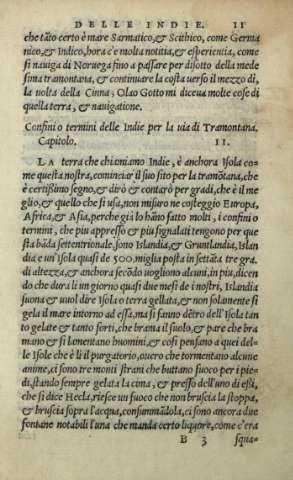 DELLE INDIE. 11
che tãto certo è mare Sarmatico, & Scithico, come Germa
nico, & Indico, hora c'è molta notitia, & esperientia, come
si nauiga di Noruega fino a passare per disotto della mede
sima tramontana, & continuare la costa uerso il mezzo dì,
la uolta della Cinna; Olao Gotto mi diceua molte cose di
quella terra, & nauigatione.
Confini o termini delle Indie per la uia di Tramontana.
Capitolo. II.
LA terra che chiamiamo Indie, è anchora Isola co-
me questa nostra, cominciar il suo sito per la tramõtana, che
è certißimo segno, & dirò & contarò per gradi, che è il me
glio, & quello che si usa, non misuro ne costeggio Europa,
Africa, & Asia, perche già lo hãno fatto molti, i confini o
termini, che piu appresso & piu segnalati tengono per que
sta bãda settentrionale, sono Islandia, & Gruntlandia, Islan
dia e un'isola quasi de 500. miglia posta in settãta tre gra.
di altezza, & anchora secõdo uogliono alcuni, in piu, dicen
do che dura lì un giorno quasi due mesi de i nostri, Islandia
suona & uuol dire Isola o terra gelata, & non solanente si
gela il mare intorno ad essa, ma si fanno dẽtro dell'Isola tan
to gelate & tanto forti, che brama il suolo, & pare che bra
mano & si lamentano huomini, & così pensano a quei del-
le Isole che è lì il purgatorio, ouero che tormentano alcune
anime, ci sono tre monti strani che buttano fuoco per i pie-
di, stando sempre gelata la cima, & presso dell'uno di eßi,
che si dice Hecla, riesce un fuoco che non bruscia la stoppa,
& bruscia sopra l'acqua, consumãdola, ci sono ancora due
fontane notabili l'una che manda certo liquore, come c'era
B 3 squa-